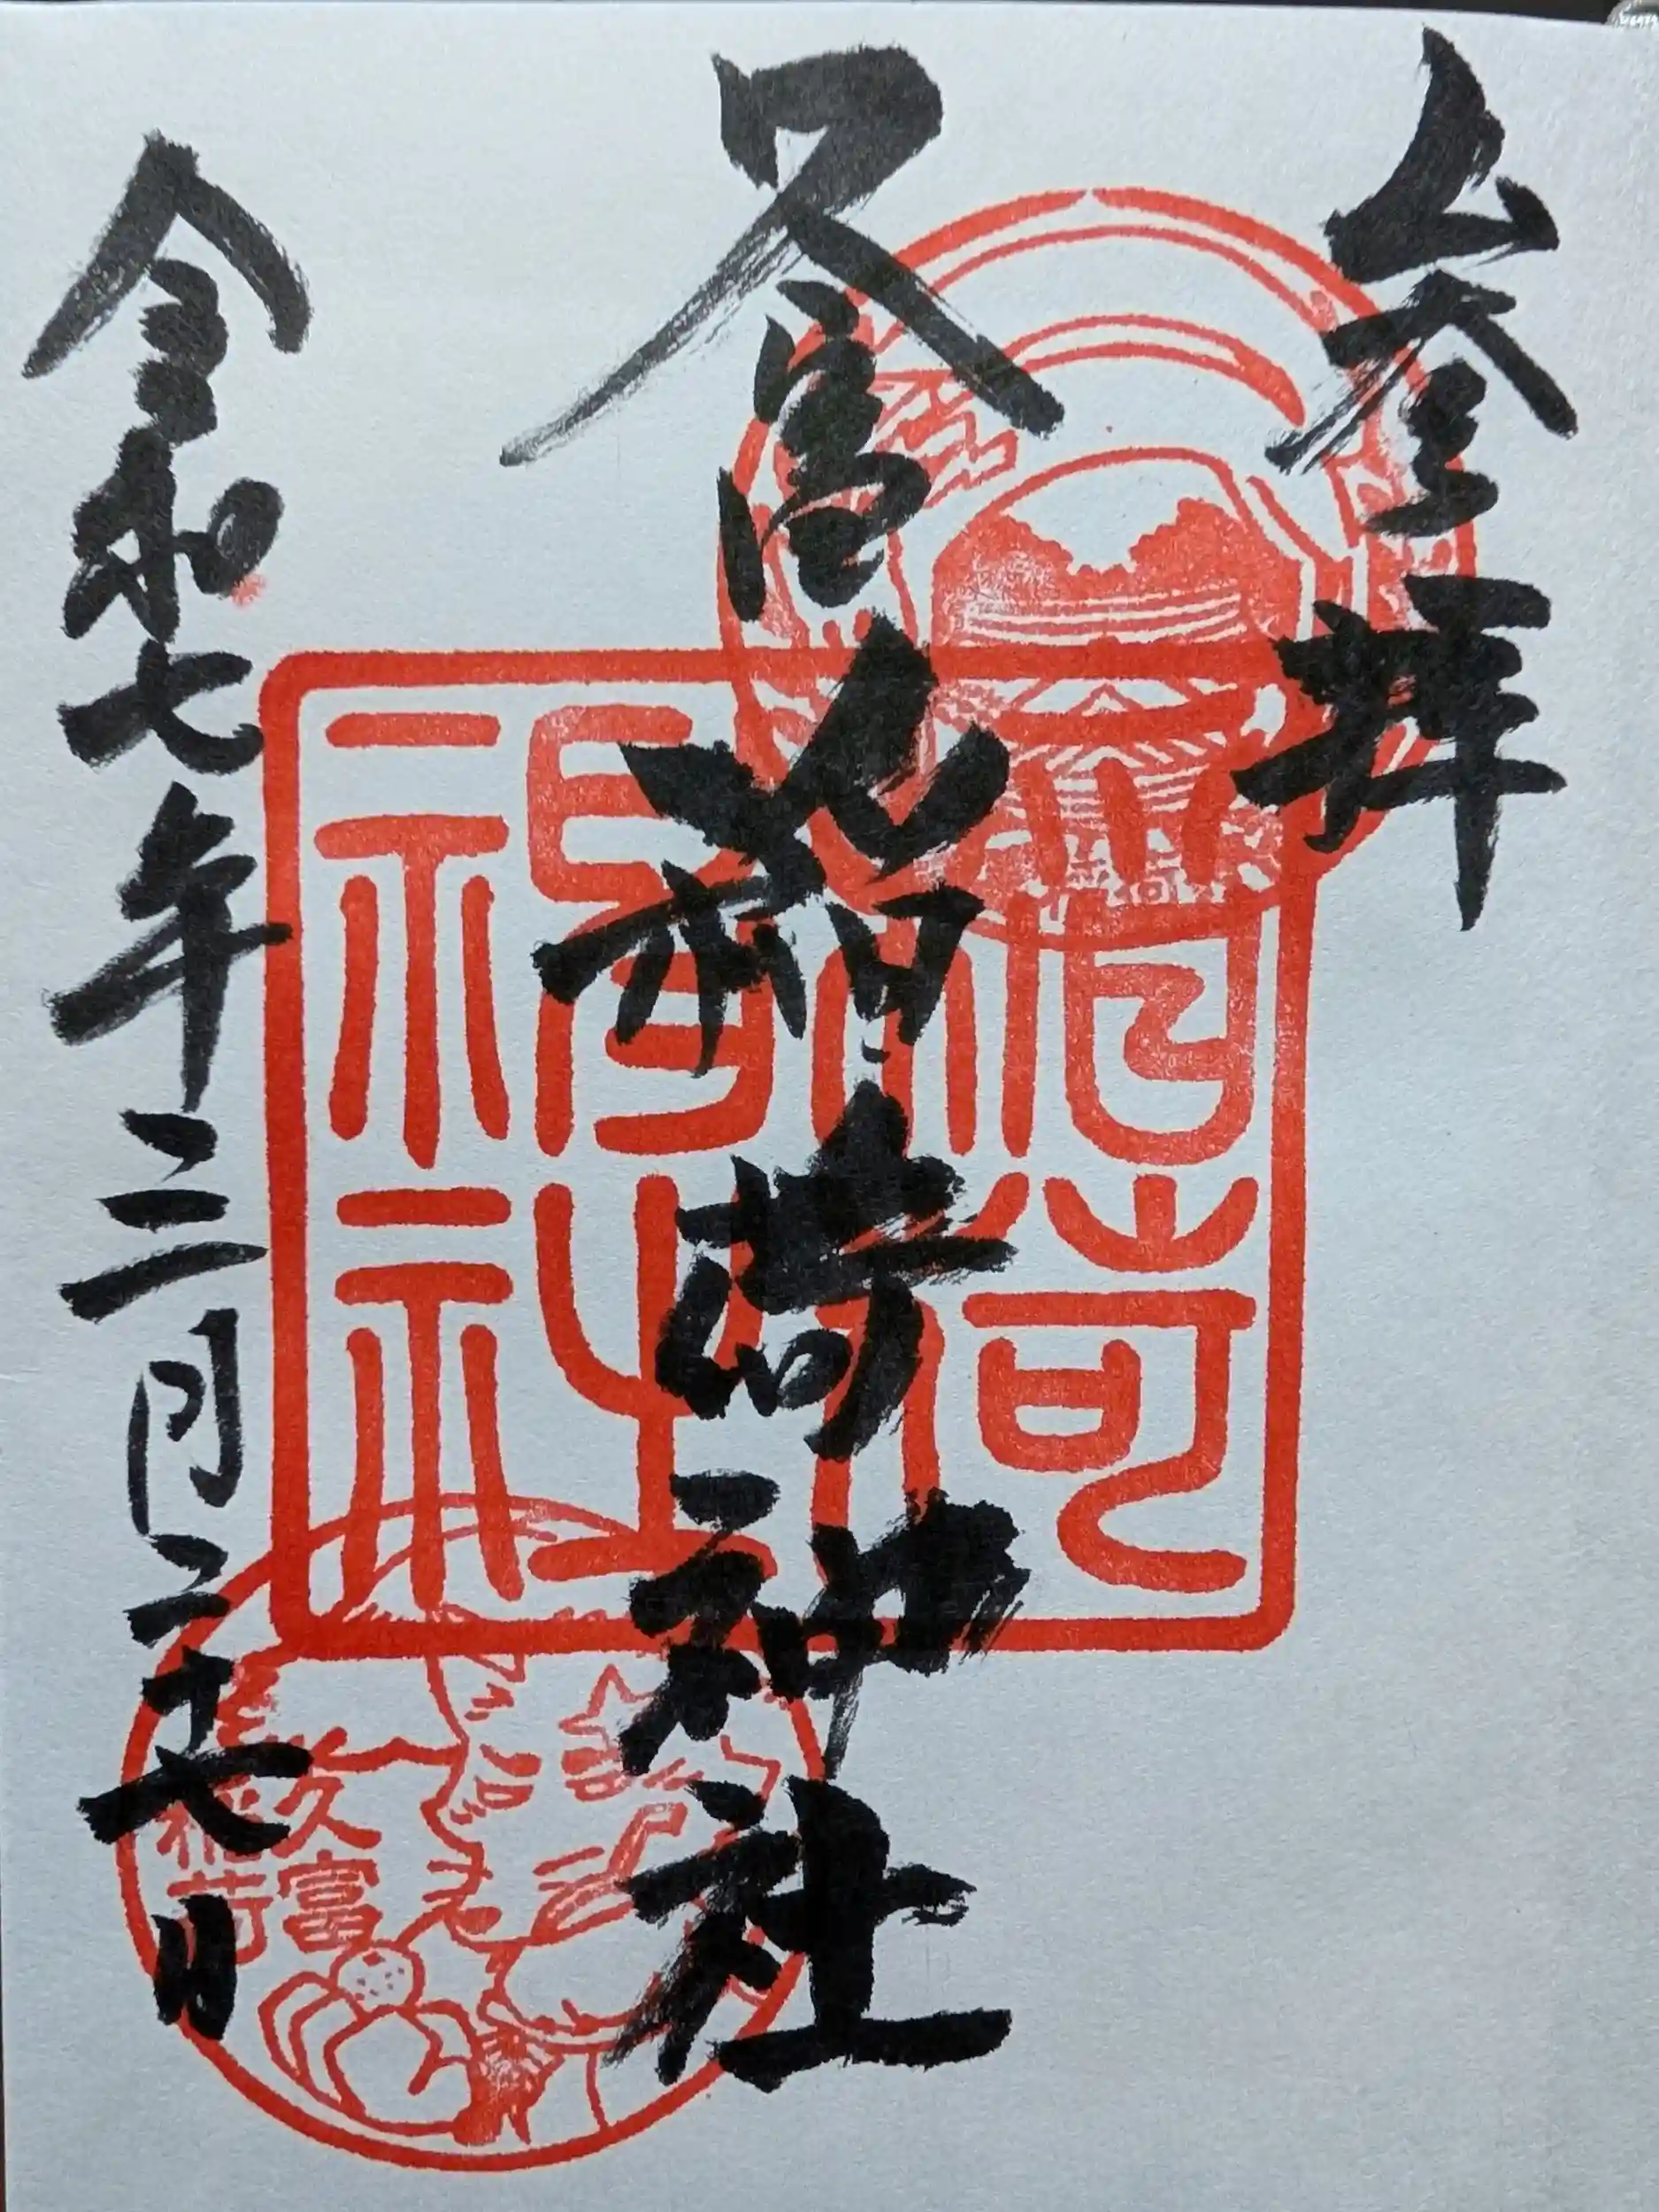 参拝
久富稲荷神社
令和七年三月二十七日
稲荷
神社
久富
稲荷